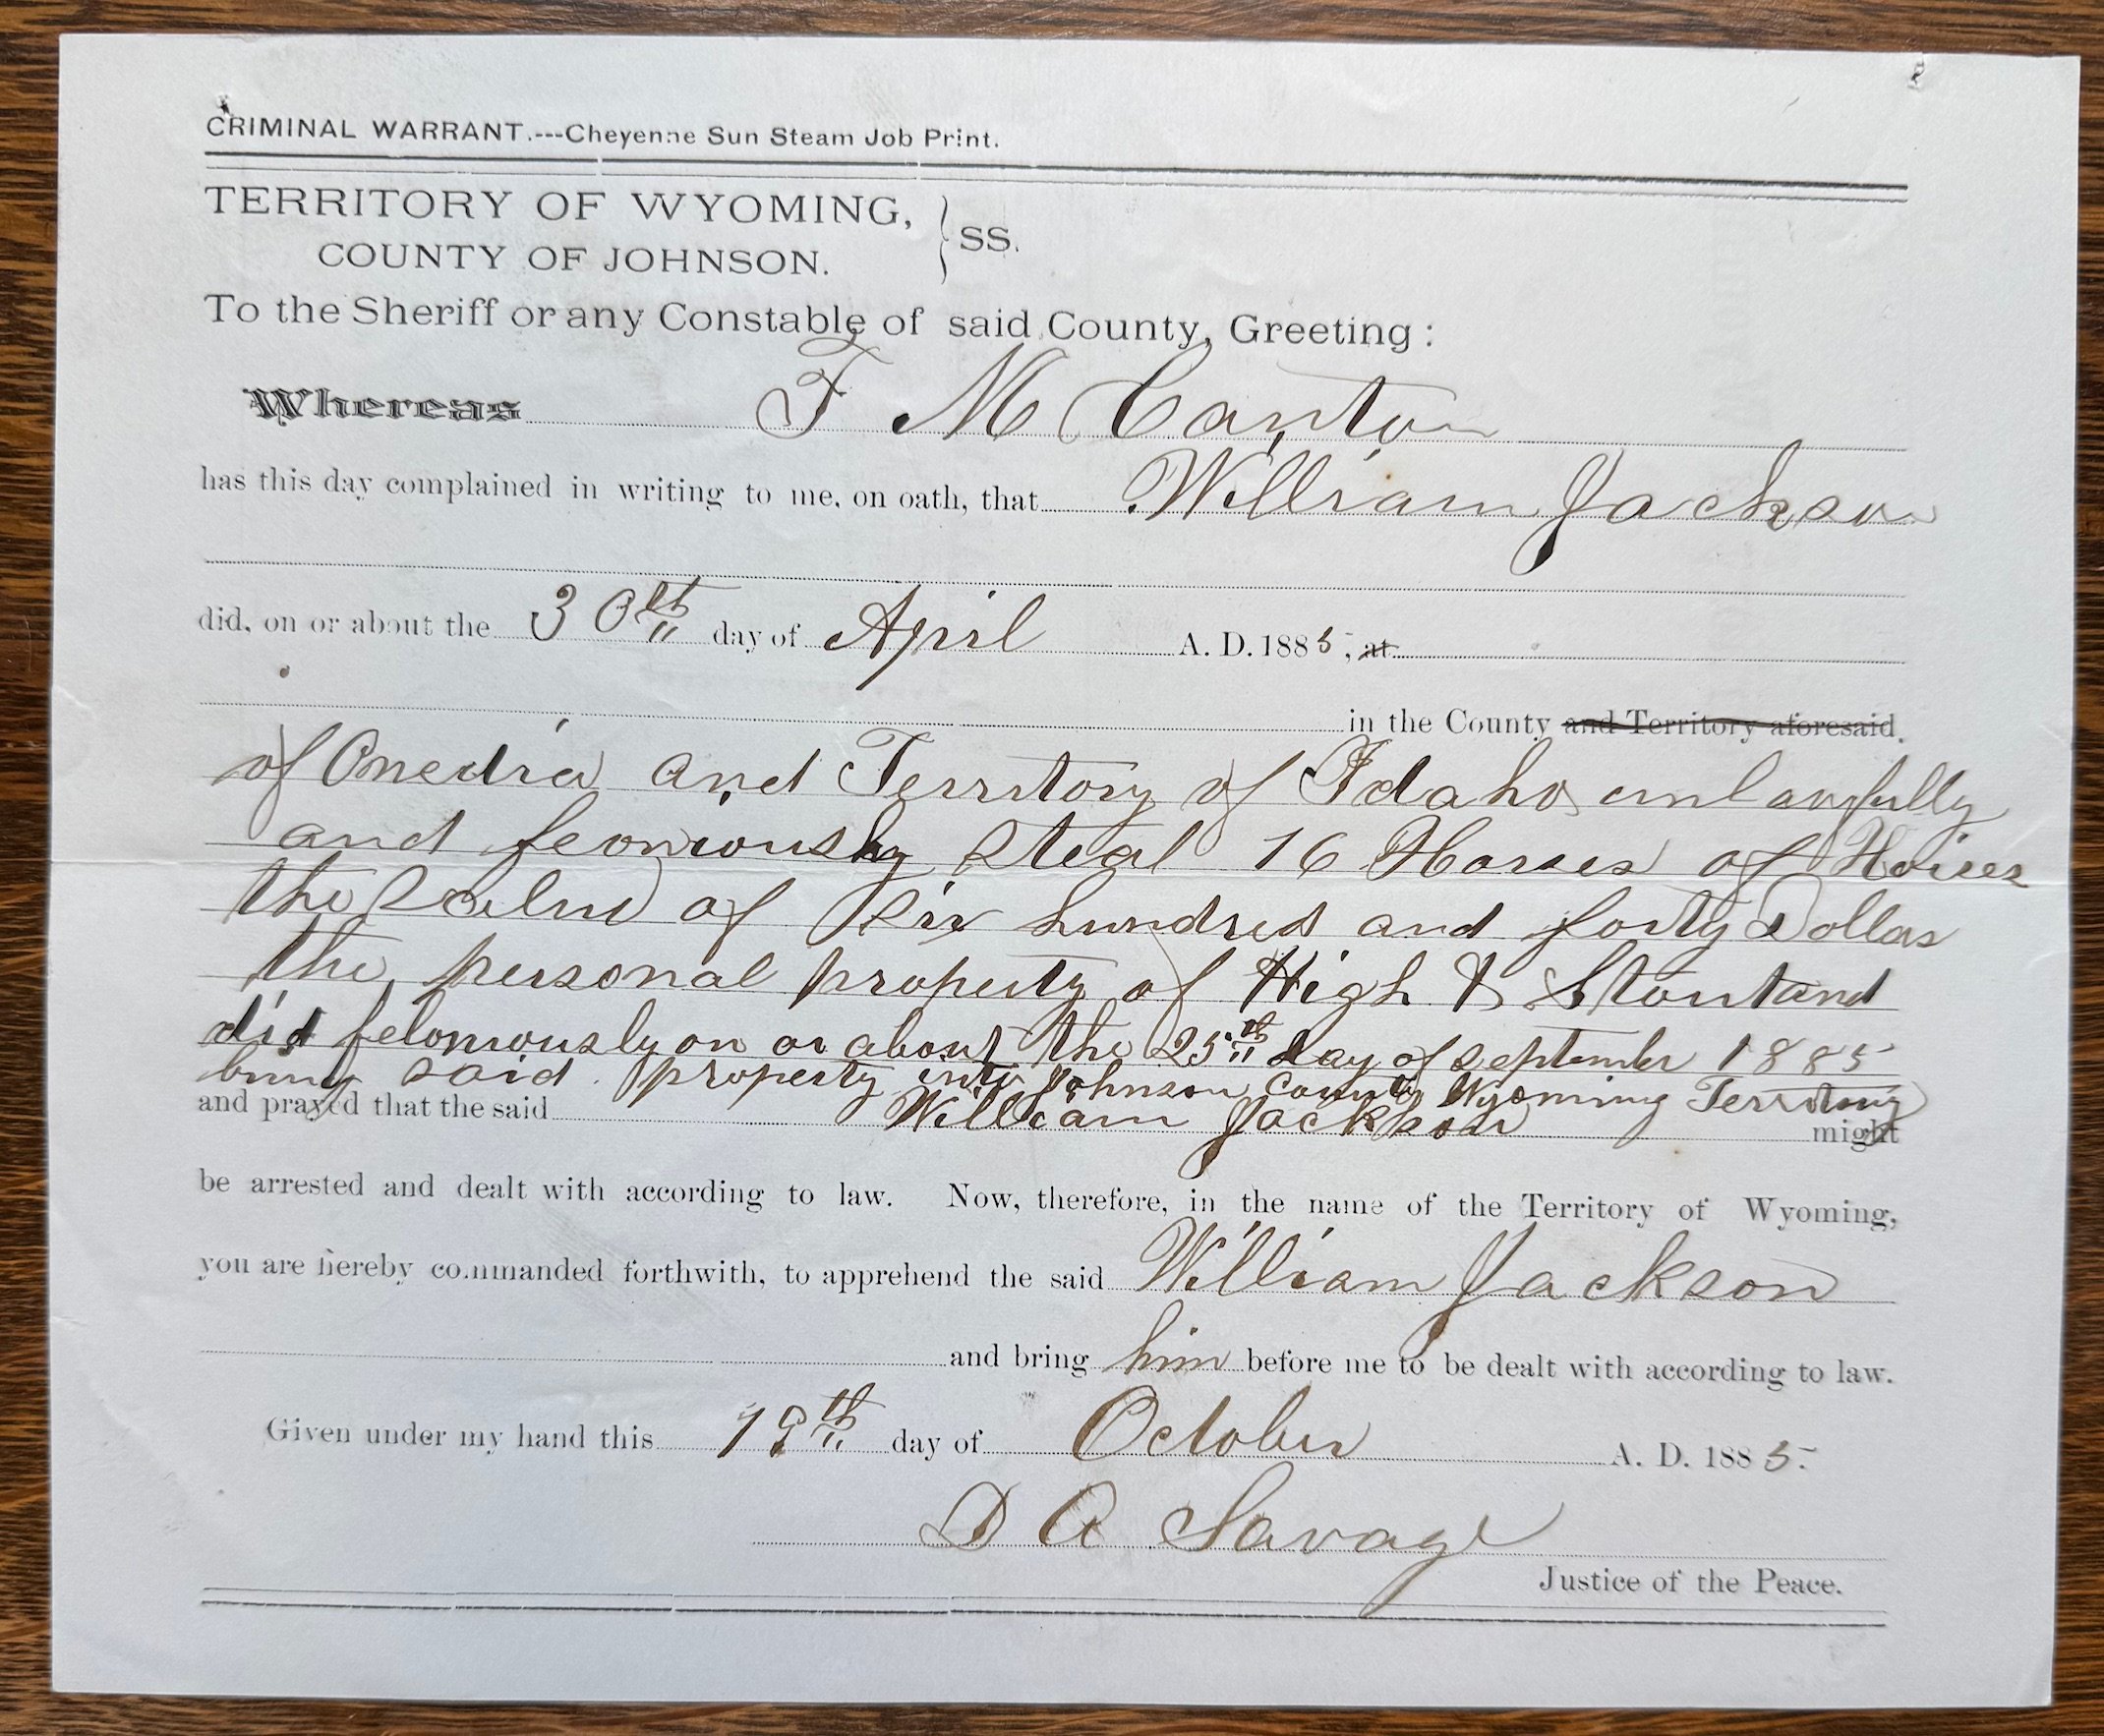 CRIMINAL WARRANT.---Cheyenne Sun Steam Job Print.
TERRITORY OF WYOMING,
COUNTY OF JOHNSON. } SS.
To the Sheriff or any Constable of said County, Greeting:
Whereas F M Canton
has this day complained in writing to me, on oath, that William Jackson
did, on or about the 30th day of April A. D. 1885, at
in the County and Territory aforesaid.
of Onedia and Territory of Idaho unlawfully
and feoniously steal 16 Horses of Horses
the value of Six hundred and forty Dollars
the personal property of High & Stout and
did feloniously on or about the 25th day of September 1885
bring said property into Johnson County Wyoming Territory
and prayed that the said William Jackson might
be arrested and dealt with according to law. Now, therefore, in the name of the Territory of Wyoming,
you are hereby commanded forthwith, to apprehend the said William Jackson
and bring him before me to be dealt with according to law.
Given under my hand this 19th day of October A. D. 1885.
D A Savage
Justice of the Peace.